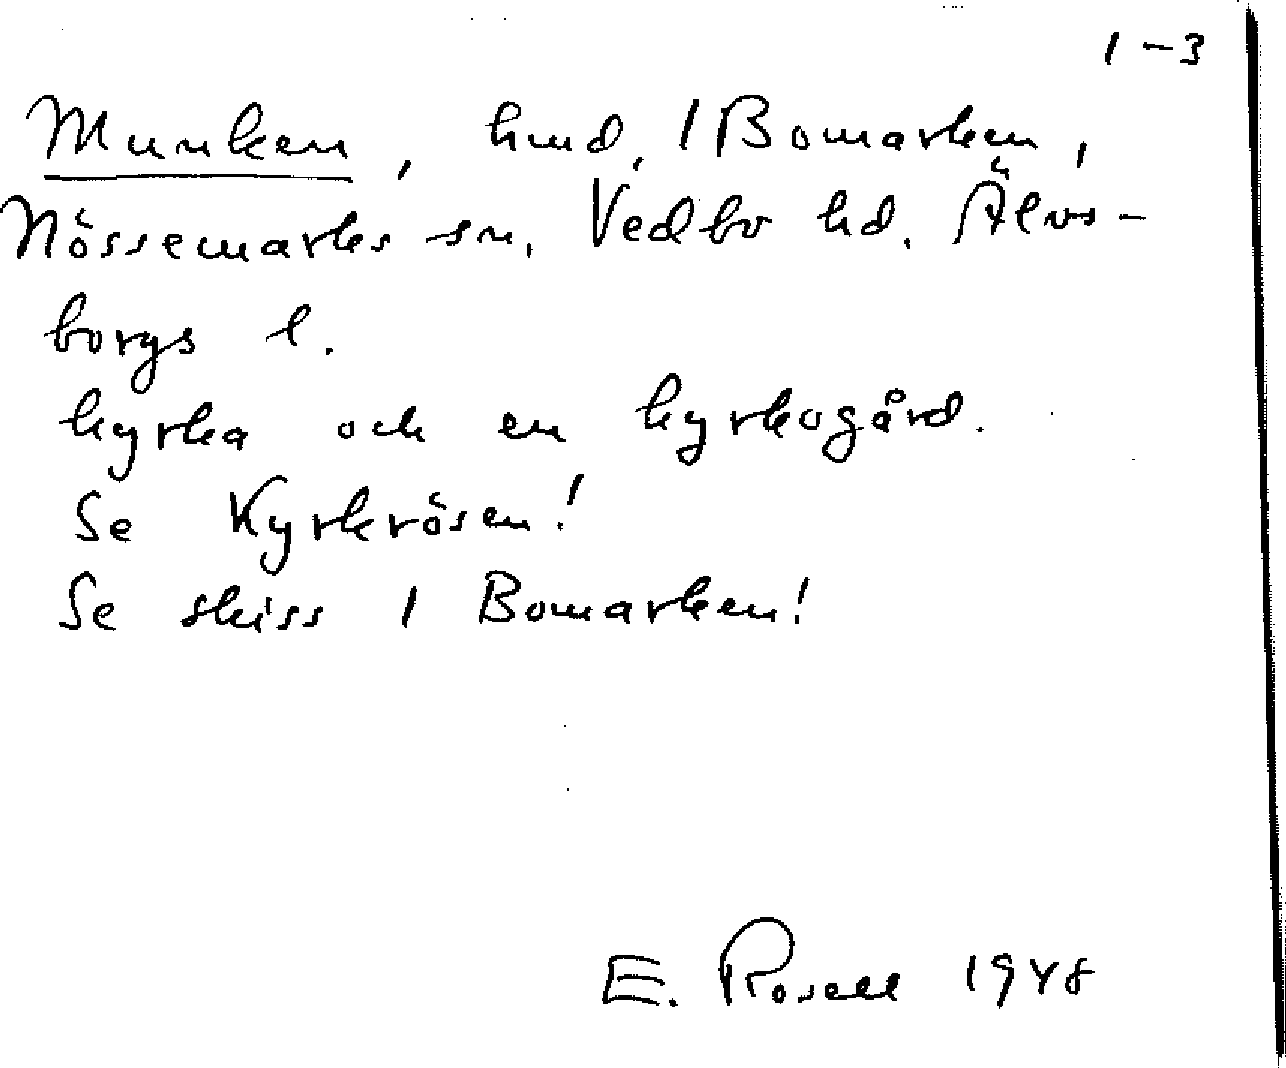 1-3
Munken, hmd, 1 Bomarken,
Nössemarks sn, Vedbo hd. Älvs-
borgs l.
kyrka och en kyrkogård.
Se Kyrkrösen!
Se skiss 1 Bomarken!
E. Rosell 1948